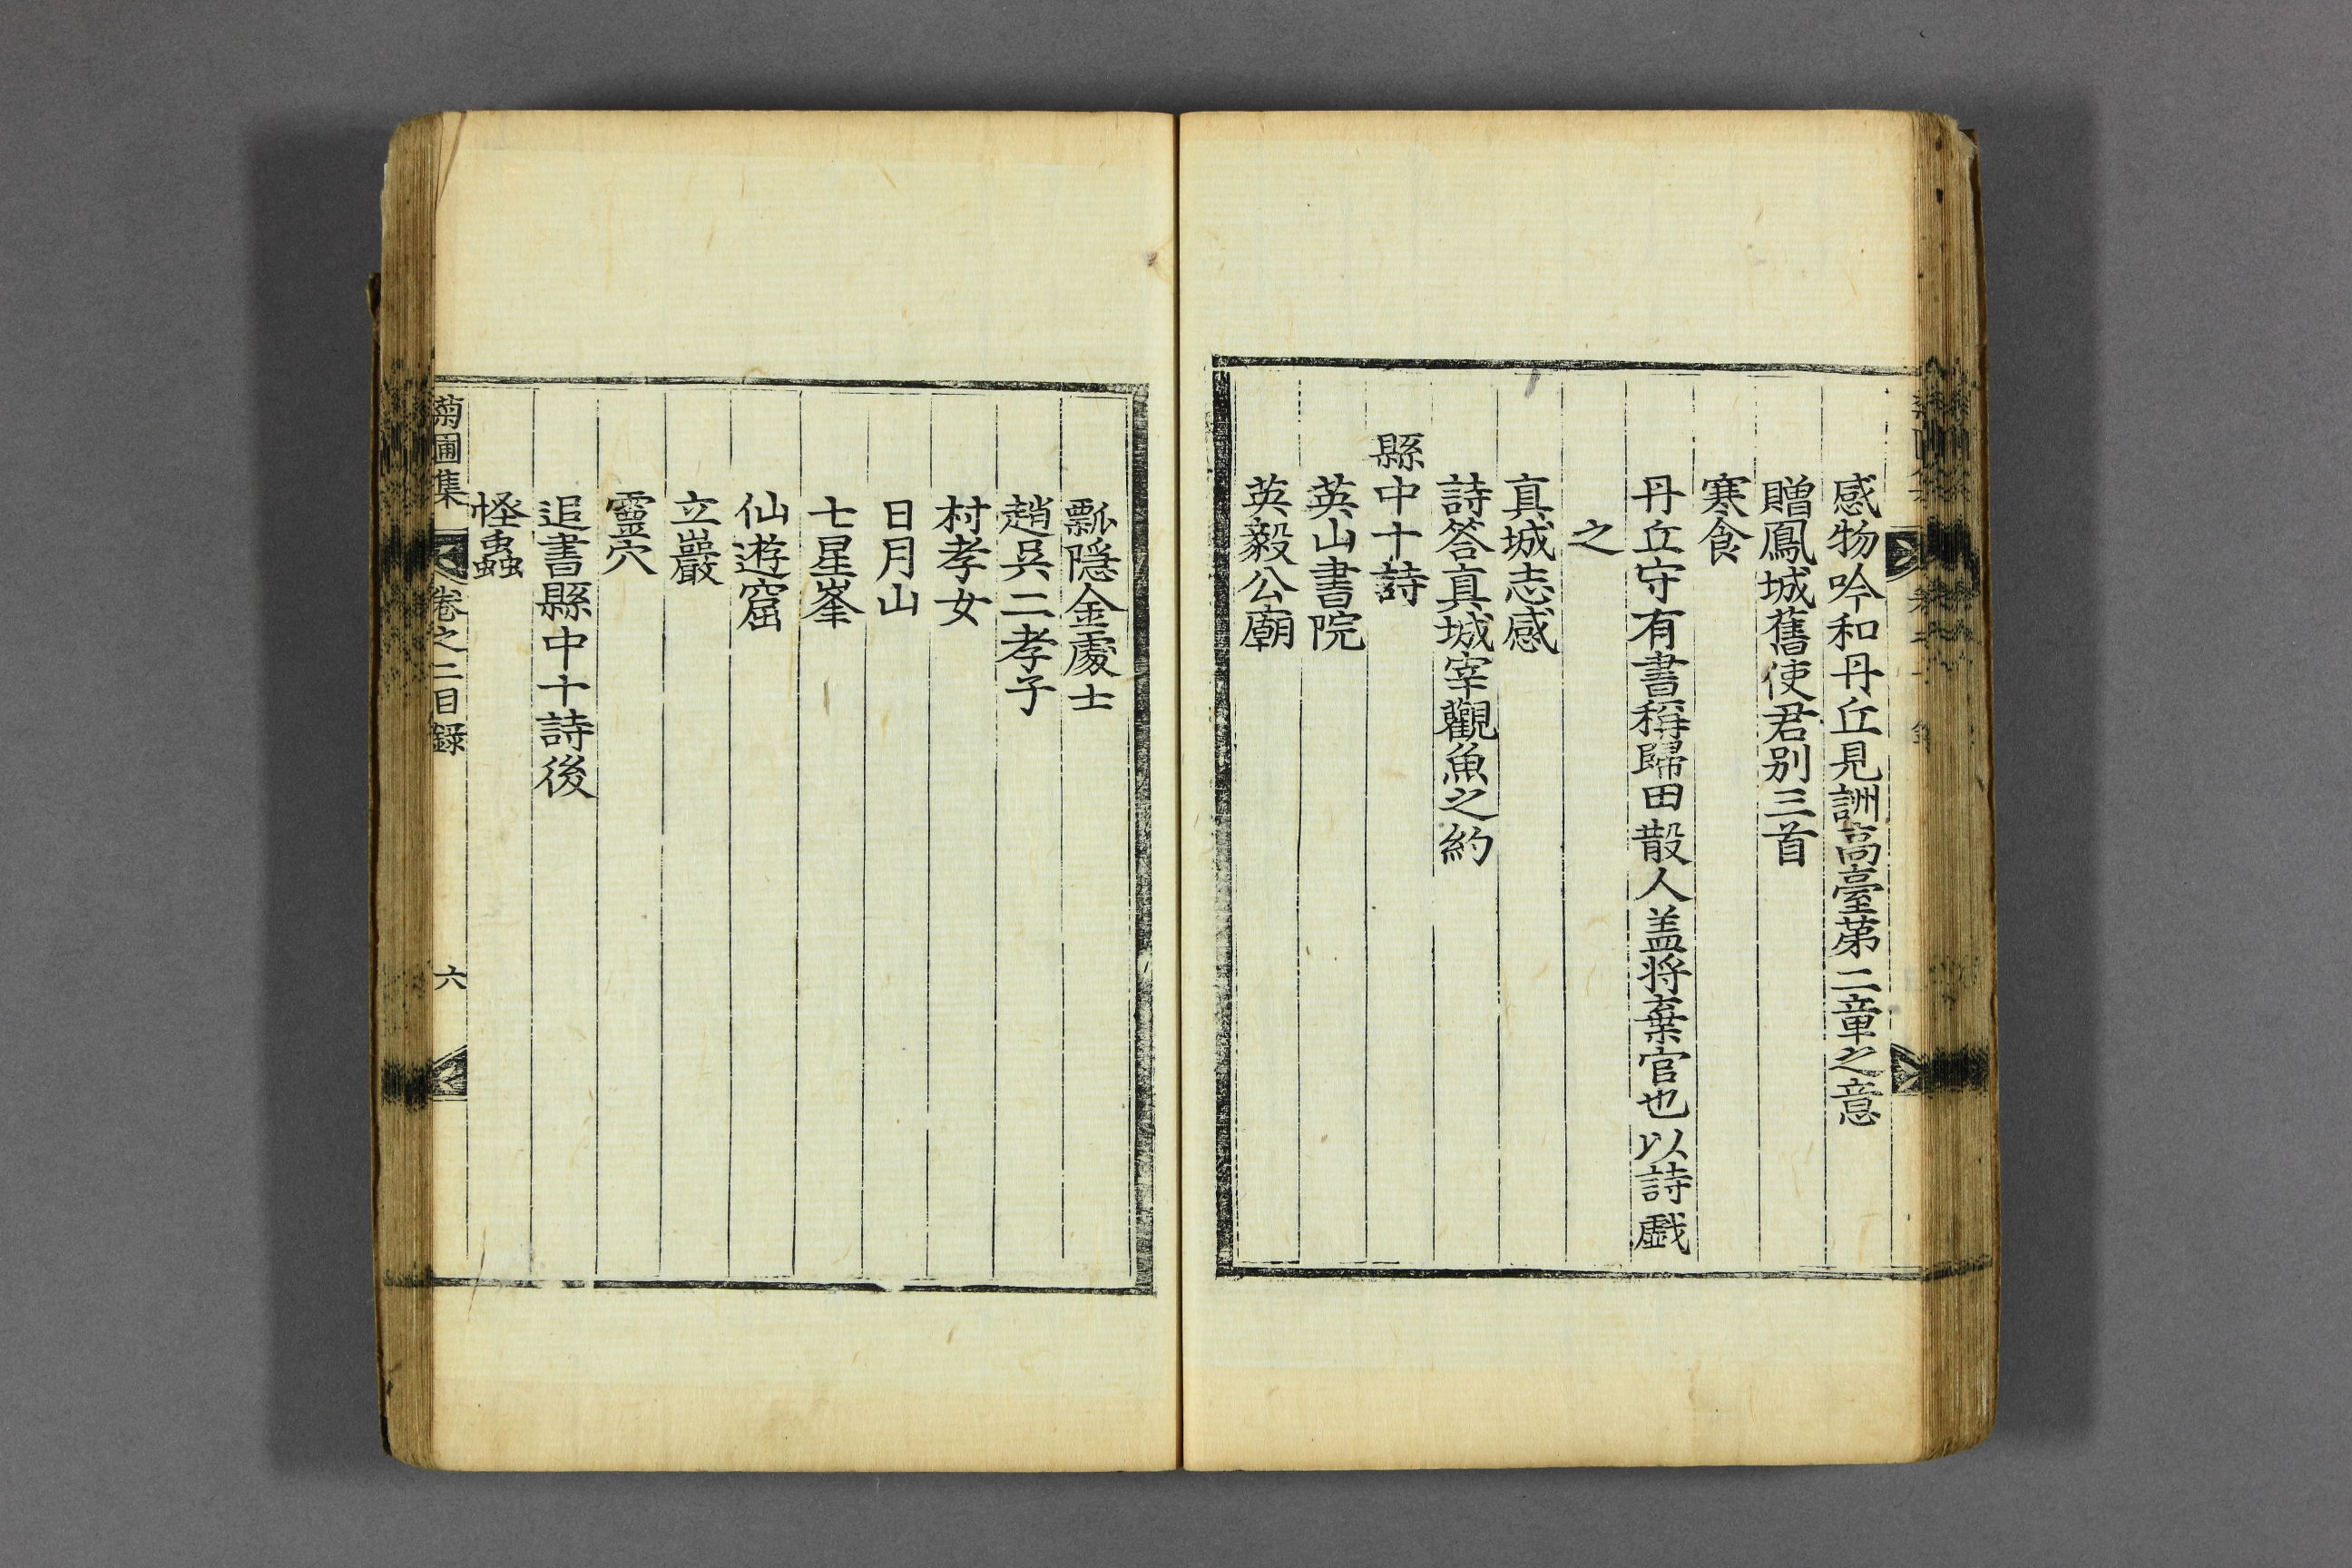 感物吟和丹丘見詶高臺第二章之意
贈鳳城舊使君别三首
寒食
丹丘守有書稱歸田散人盖將棄官也以詩戲
之
真城志感
詩答真城宰觀魚之約
縣中十詩
英山書院
英毅公廟
瓢隱金處士
趙吳二孝子
村孝女
日月山
七星峯
仙遊窟
立巖
靈穴
追書縣中十詩後
怪蟲
菊圃集 卷之二目録 六